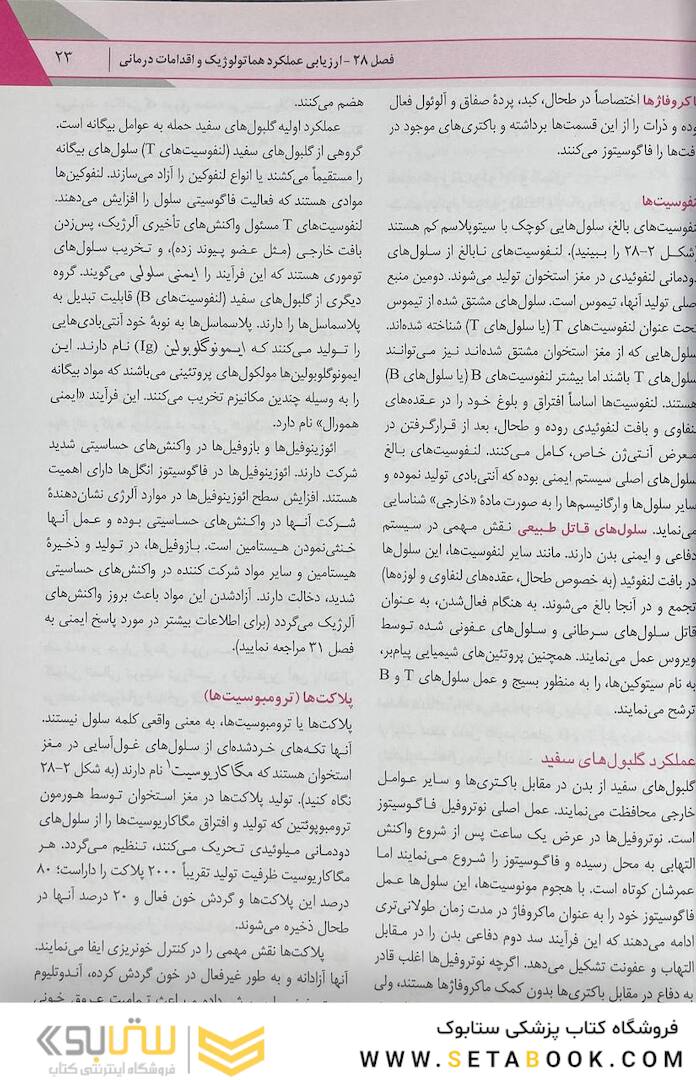 فصل ۲۸ - ارزیابی عملکرد هماتولوژیک و اقدامات درمانی
۲۳
ماکروفاژها اختصاصاً در طحال، کبد، پردهٔ صفاق و آلوئول فعال
بوده و ذرات را از این قسمت‌ها برداشته و باکتری‌های موجود در
بافت‌ها را فاگوسیتوز می‌کنند.
لنفوسیت‌ها
لنفوسیت‌های بالغ، سلول‌هایی کوچک با سیتوپلاسم کم هستند
(شکل ۲-۲۸ را ببینید). لنفوسیت‌های نابالغ از سلول‌های
دودمانی لنفوئیدی در مغز استخوان تولید می‌شوند. دومین منبع
اصلی تولید آنها، تیموس است. سلول‌های مشتق شده از تیموس
تحت عنوان لنفوسیت‌های T (یا سلول‌های T) شناخته شده‌اند.
سلول‌هایی که از مغز استخوان مشتق شده‌اند نیز می‌توانند
سلول‌های T باشند اما بیشتر لنفوسیت‌های B (یا سلول‌های B)
هستند. لنفوسیت‌ها اساساً افتراق و بلوغ خود را در عقده‌های
لنفاوی و بافت لنفوئیدی روده و طحال، بعد از قرارگرفتن در
معرض آنتی‌ژن خاص، کامل می‌کنند. لنفوسیت‌های بالغ
سلول‌های اصلی سیستم ایمنی بوده که آنتی‌بادی تولید نموده و
سایر سلول‌ها و ارگانیسم‌ها را به صورت مادهٔ «خارجی» شناسایی
می‌نماید. سلول‌های قاتل طبیعی نقش مهمی در سیستم
دفاعی و ایمنی بدن دارند. مانند سایر لنفوسیت‌ها، این سلول‌ها
در بافت لنفوئید (به خصوص طحال، عقده‌های لنفاوی و لوزه‌ها)
تجمع و در آنجا بالغ می‌شوند. به هنگام فعال‌شدن، به عنوان
قاتل سلول‌های سرطانی و سلول‌های عفونی شده توسط
ویروس عمل می‌نمایند. همچنین پروتئین‌های شیمیایی پیام‌بر،
به نام سیتوکین‌ها، را به منظور بسیج و عمل سلول‌های T و B
ترشح می‌نمایند.
عملکرد گلبول‌های سفید
گلبول‌های سفید از بدن در مقابل باکتری‌ها و سایر عوامل
خارجی محافظت می‌نمایند. عمل اصلی نوتروفیل فاگوسیتوز
است. نوتروفیل‌ها در عرض یک ساعت پس از شروع واکنش
التهابی به محل رسیده و فاگوسیتوز را شروع می‌نمایند اما
عمرشان کوتاه است. با هجوم مونوسیت‌ها، این سلول‌ها عمل
فاگوسیتوز خود را به عنوان ماکروفاژ در مدت زمان طولانی‌تری
ادامه می‌دهند که این فرآیند سد دوم دفاعی بدن را در مقابل
التهاب و عفونت تشکیل می‌دهد. اگرچه نوتروفیل‌ها اغلب قادر
به دفاع در مقابل باکتری‌ها بدون کمک ماکروفاژها هستند، ولی
هضم می‌کنند.
عملکرد اولیه گلبول‌های سفید حمله به عوامل بیگانه است.
گروهی از گلبول‌های سفید (لنفوسیت‌های T) سلول‌های بیگانه
را مستقیماً می‌کشند یا انواع لنفوکین را آزاد می‌سازند. لنفوکین‌ها
موادی هستند که فعالیت فاگوسیتی سلول را افزایش می‌دهند.
لنفوسیت‌های T مسئول واکنش‌های تأخیری آلرژیک، پس‌زدن
بافت خارجی (مثل عضو پیوند زده)، و تخریب سلول‌های
توموری هستند که این فرآیند را ایمنی سلولی می‌گویند. گروه
دیگری از گلبول‌های سفید (لنفوسیت‌های B) قابلیت تبدیل به
پلاسماسل‌ها را دارند. پلاسماسل‌ها به نوبهٔ خود آنتی‌بادی‌هایی
را تولید می‌کنند که ایمونوگلوبولین (Ig) نام دارند. این
ایمونوگلوبولین‌ها مولکول‌های پروتئینی می‌باشند که مواد بیگانه
را به وسیله چندین مکانیزم تخریب می‌کنند. این فرآیند «ایمنی
همورال» نام دارد.
ائوزینوفیل‌ها و بازوفیل‌ها در واکنش‌های حساسیتی شدید
شرکت دارند. ائوزینوفیل‌ها در فاگوسیتوز انگل‌ها دارای اهمیت
هستند. افزایش سطح ائوزینوفیل‌ها در موارد آلرژی نشان‌دهندهٔ
شرکت آنها در واکنش‌های حساسیتی بوده و عمل آنها
خنثی‌نمودن هیستامین است. بازوفیل‌ها، در تولید و ذخیرهٔ
هیستامین و سایر مواد شرکت کننده در واکنش‌های حساسیتی
شدید، دخالت دارند. آزادشدن این مواد باعث بروز واکنش‌های
آلرژیک می‌گردد (برای اطلاعات بیشتر در مورد پاسخ ایمنی به
فصل ۳۱ مراجعه نمایید).
پلاکت‌ها (ترومبوسیت‌ها)
پلاکت‌ها یا ترومبوسیت‌ها، به معنی واقعی کلمه سلول نیستند.
آنها تکه‌های خردشده‌ای از سلول‌های غول‌آسایی در مغز
استخوان هستند که مگاکاریوسیت۱ نام دارند (به شکل ۲-۲۸
نگاه کنید). تولید پلاکت‌ها در مغز استخوان توسط هورمون
ترومبوپوئتین که تولید و افتراق مگاکاریوسیت‌ها را از سلول‌های
دودمانی میلوئیدی تحریک می‌کنند، تنظیم می‌گردد. هر
مگاکاریوسیت ظرفیت تولید تقریباً ۲۰۰۰ پلاکت را داراست؛ ۸۰
درصد این پلاکت‌ها و گردش خون فعال و ۲۰ درصد آنها در
طحال ذخیره می‌شوند.
پلاکت‌ها نقش مهمی را در کنترل خونریزی ایفا می‌نمایند.
آنها آزادانه و به طور غیرفعال در خون گردش کرده، آندوتلیوم
فروشگاه کتاب پزشکی ستابوک
WWW.SETABOOK.COM
ستابوک
فروشگاه اینترنتی کتاب